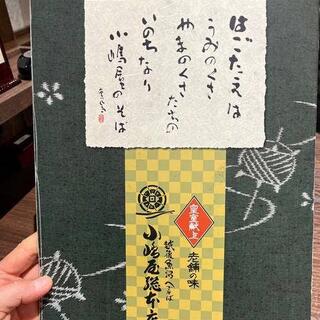 はごたえは
うみのくさ
やまのくさたちの
いのちなり
小嶋屋のそば
皇室献上
老舗の味
越後魚沼へぎそば
小嶋屋總本店